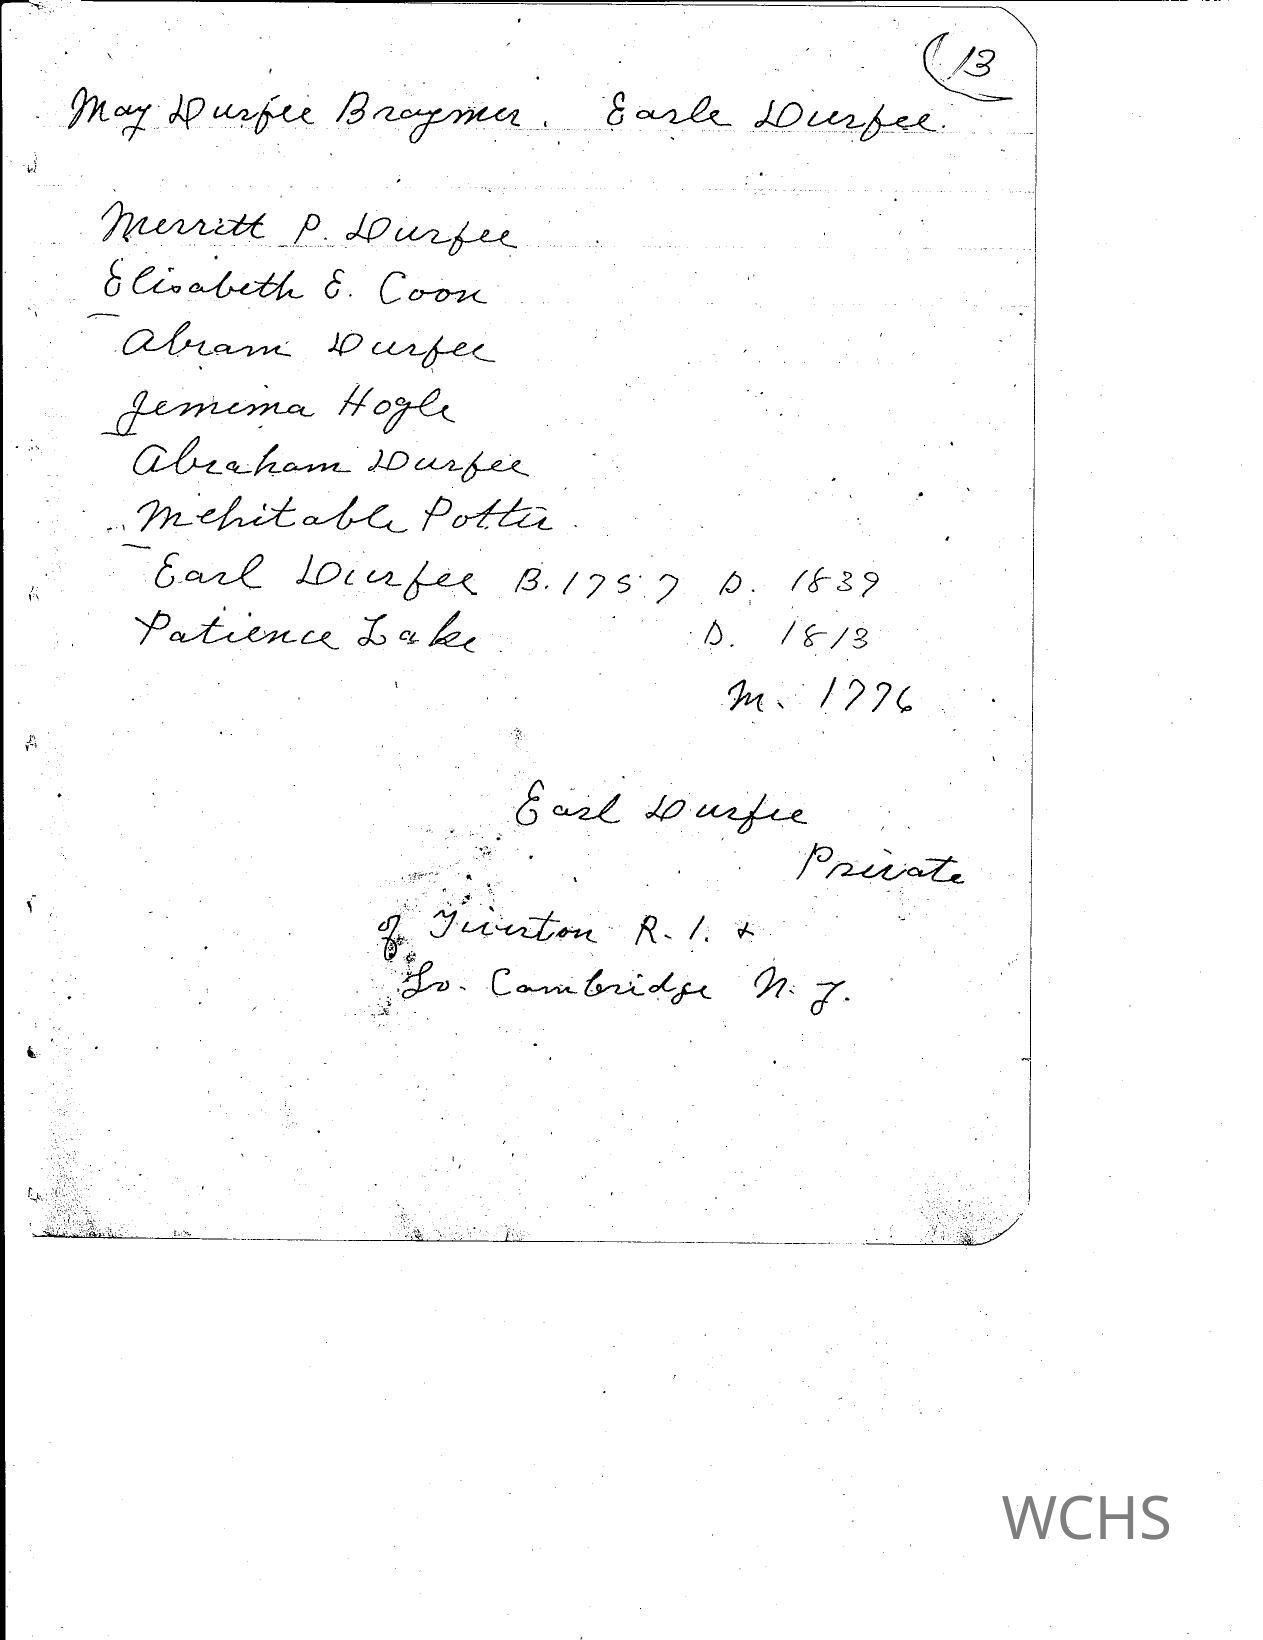 13
May Durfee Braymer. Earle Durfee.
Merritt P. Durfee
Elisabeth E. Coon
Abram Durfee
Jemima Hogle
Abraham Durfee
Mehitable Potter
Earl Durfee B. 1757 D. 1839
Patience Lake D. 1813
M. 1776
Earl Durfee
Private
of Tiverton R. I. &
So. Cambridge N. Y.
WCHS